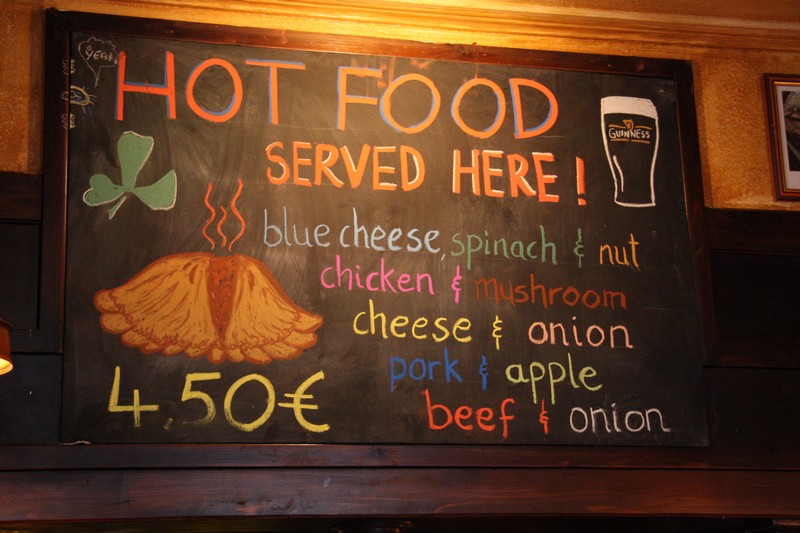 YEAH
HOT FOOD
SERVED HERE!
GUINNESS
blue cheese, spinach & nut
chicken & mushroom
cheese & onion
pork & apple
beef & onion
4,50€